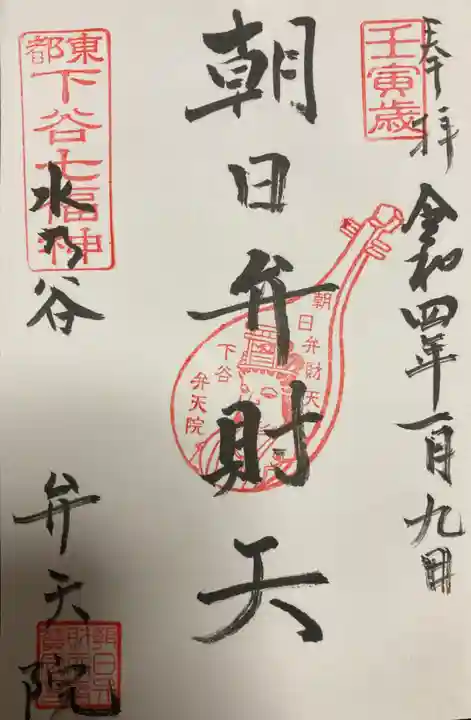 奉拝
令和四年一月九日
壬寅歳
朝日弁財天
朝日弁財天
下谷
弁天院
東都
下谷七福神
水乃谷
弁天院